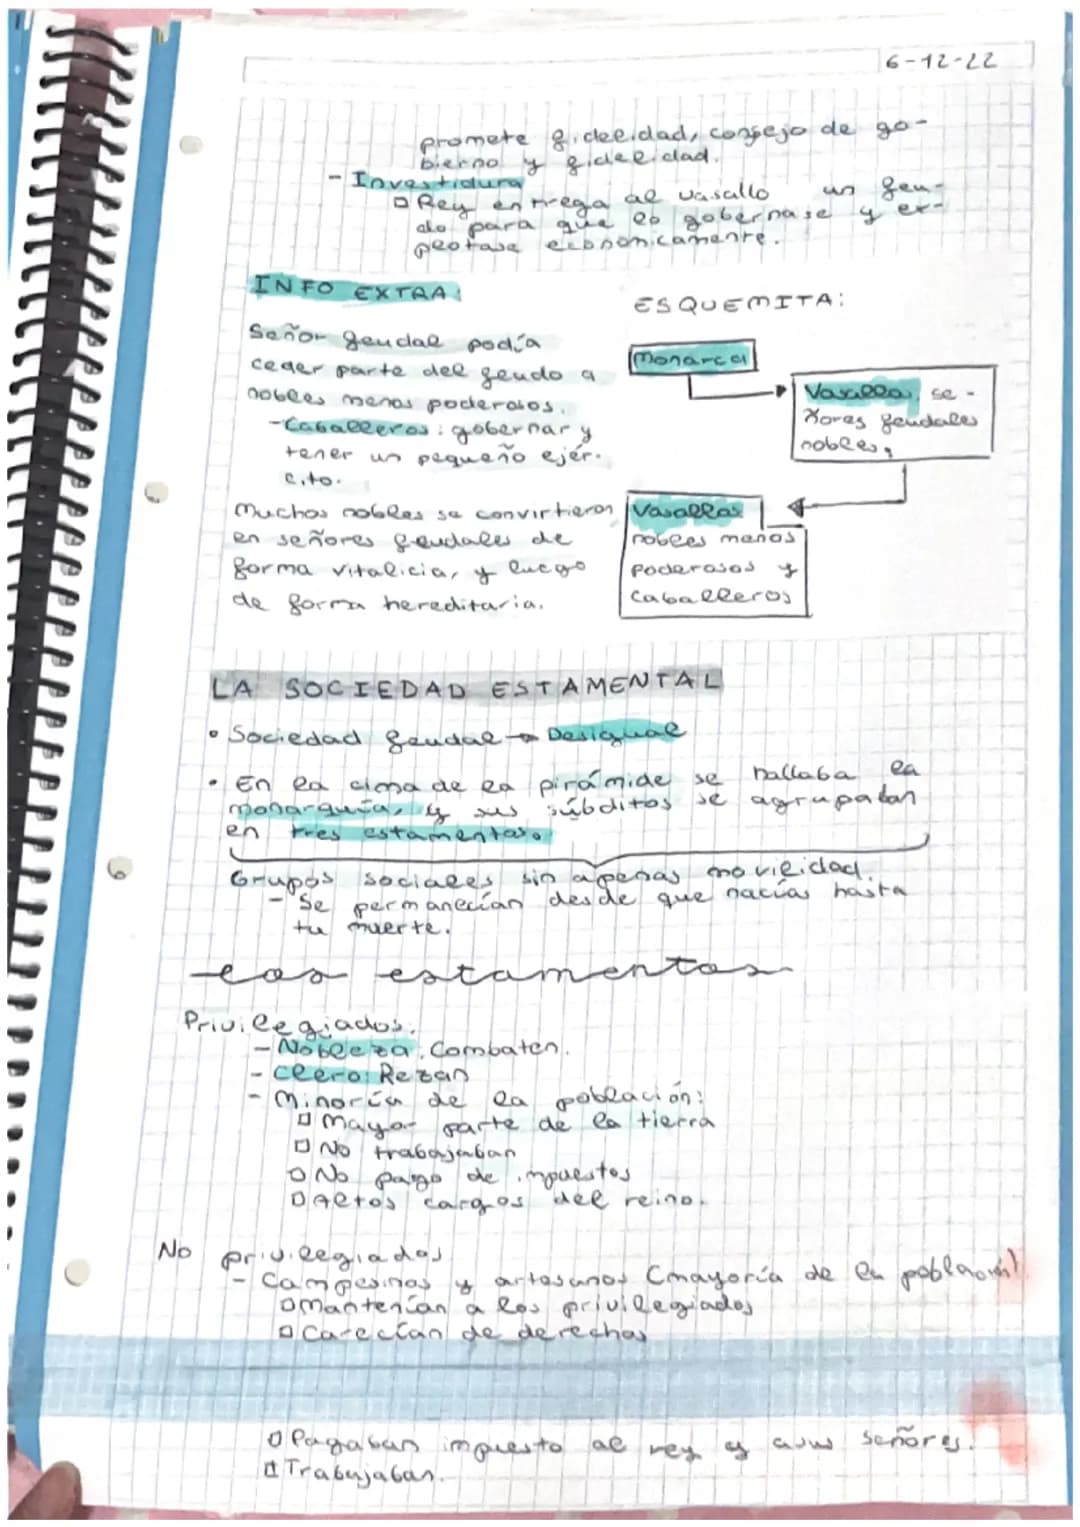 6-12-22
promete fidelidad, consejo de go-
bierno y fidelidad.
- Investidura
▫ Rey entrega al vasallo un feu-
do para que lo gobernase y ex-
plotase económicamente.
INFO EXTRA:
Señor feudal podía
ceder parte del feudo a
nobles menos poderosos.
- Caballeros: gobernar y
tener un pequeño ejér-
cito.
Muchos nobles se convirtieron
en señores feudales de
forma vitalicia, y luego
de forma hereditaria.
ESQUEMITA:
Monarca
Vasallos, se-
ñores feudales
nobles,
Vasallos
nobles menos
poderosos y
caballeros
LA SOCIEDAD ESTAMENTAL
• Sociedad feudal → Desigual
• En la cima de la pirámide se hallaba la
monarquía, y sus súbditos se agrupaban
en tres estamentos.
Grupos sociales sin apenas movilidad.
- Se permanecían desde que nacías hasta
tu muerte.
los estamentos
Privilegiados.
- Nobleza: Combaten.
- Clero: Rezan
- Minoría de la población:
▫ Mayor parte de la tierra
▫ No trabajaban
▫ No pago de impuestos
▫ Altos cargos del reino.
No privilegiados
- Campesinos y artesanos (mayoría de la población)
▫ Mantenían a los privilegiados
▫ Carecían de derechos
▫ Pagaban impuesto al rey y a sus señores.
▫ Trabajaban.